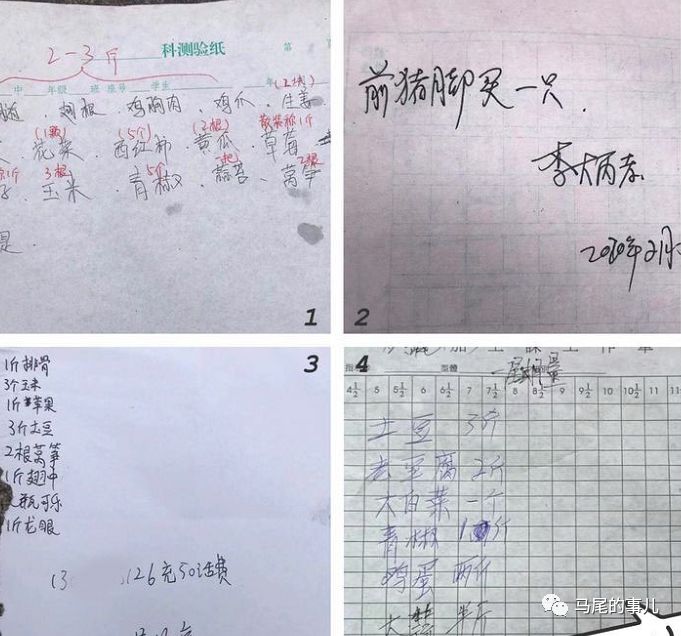 2-3斤
科测验纸
年级 班 座号 学生
翅根、鸡胸肉、鸡爪、生姜
(1颗) (5个) (2根) 散装称1斤
花菜 西红柿 黄瓜 草莓
3根 5个 一把 2根
玉米 青椒 蒜苔 莴笋
是.
1
前猪脚买一只.
李大丙孝
2020年2月
2
3
1斤排骨
3个玉米
1斤苹果
3斤土豆
2根莴笋
1斤翅中
瓶可乐
1斤龙眼
13 126充50话费
4
4½ 5 5½ 6 6½ 7 7½ 8 8½ 9 9½ 10 10½ 11
土豆 3斤
老豆腐 2斤
大白菜 一个
青椒 1斤
鸡蛋 两斤
大蒜 半斤
马尾的事儿